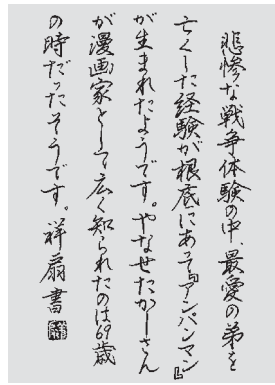 悲惨な戦争体験の中、最愛の弟を
亡くした経験が根底にあって『アンパンマン』
が生まれたようです。やなせたかしさん
が漫画家として広く知られたのは69歳
の時だったそうです。祥扇書